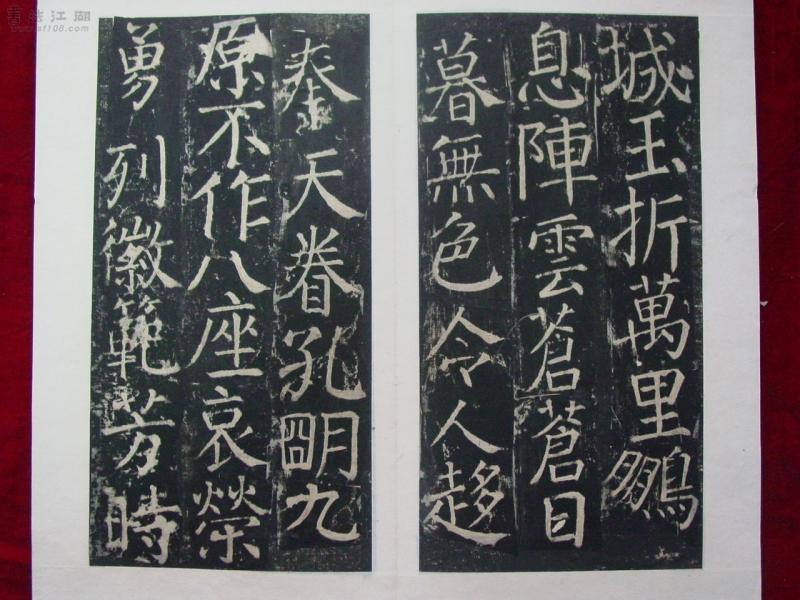 書法江湖
www.sf108.com
城玉折萬里鵬
息陣雲蒼蒼日
暮無色令人趍
天眷孔朙九
原不作八座哀榮
勇列徽範芳時